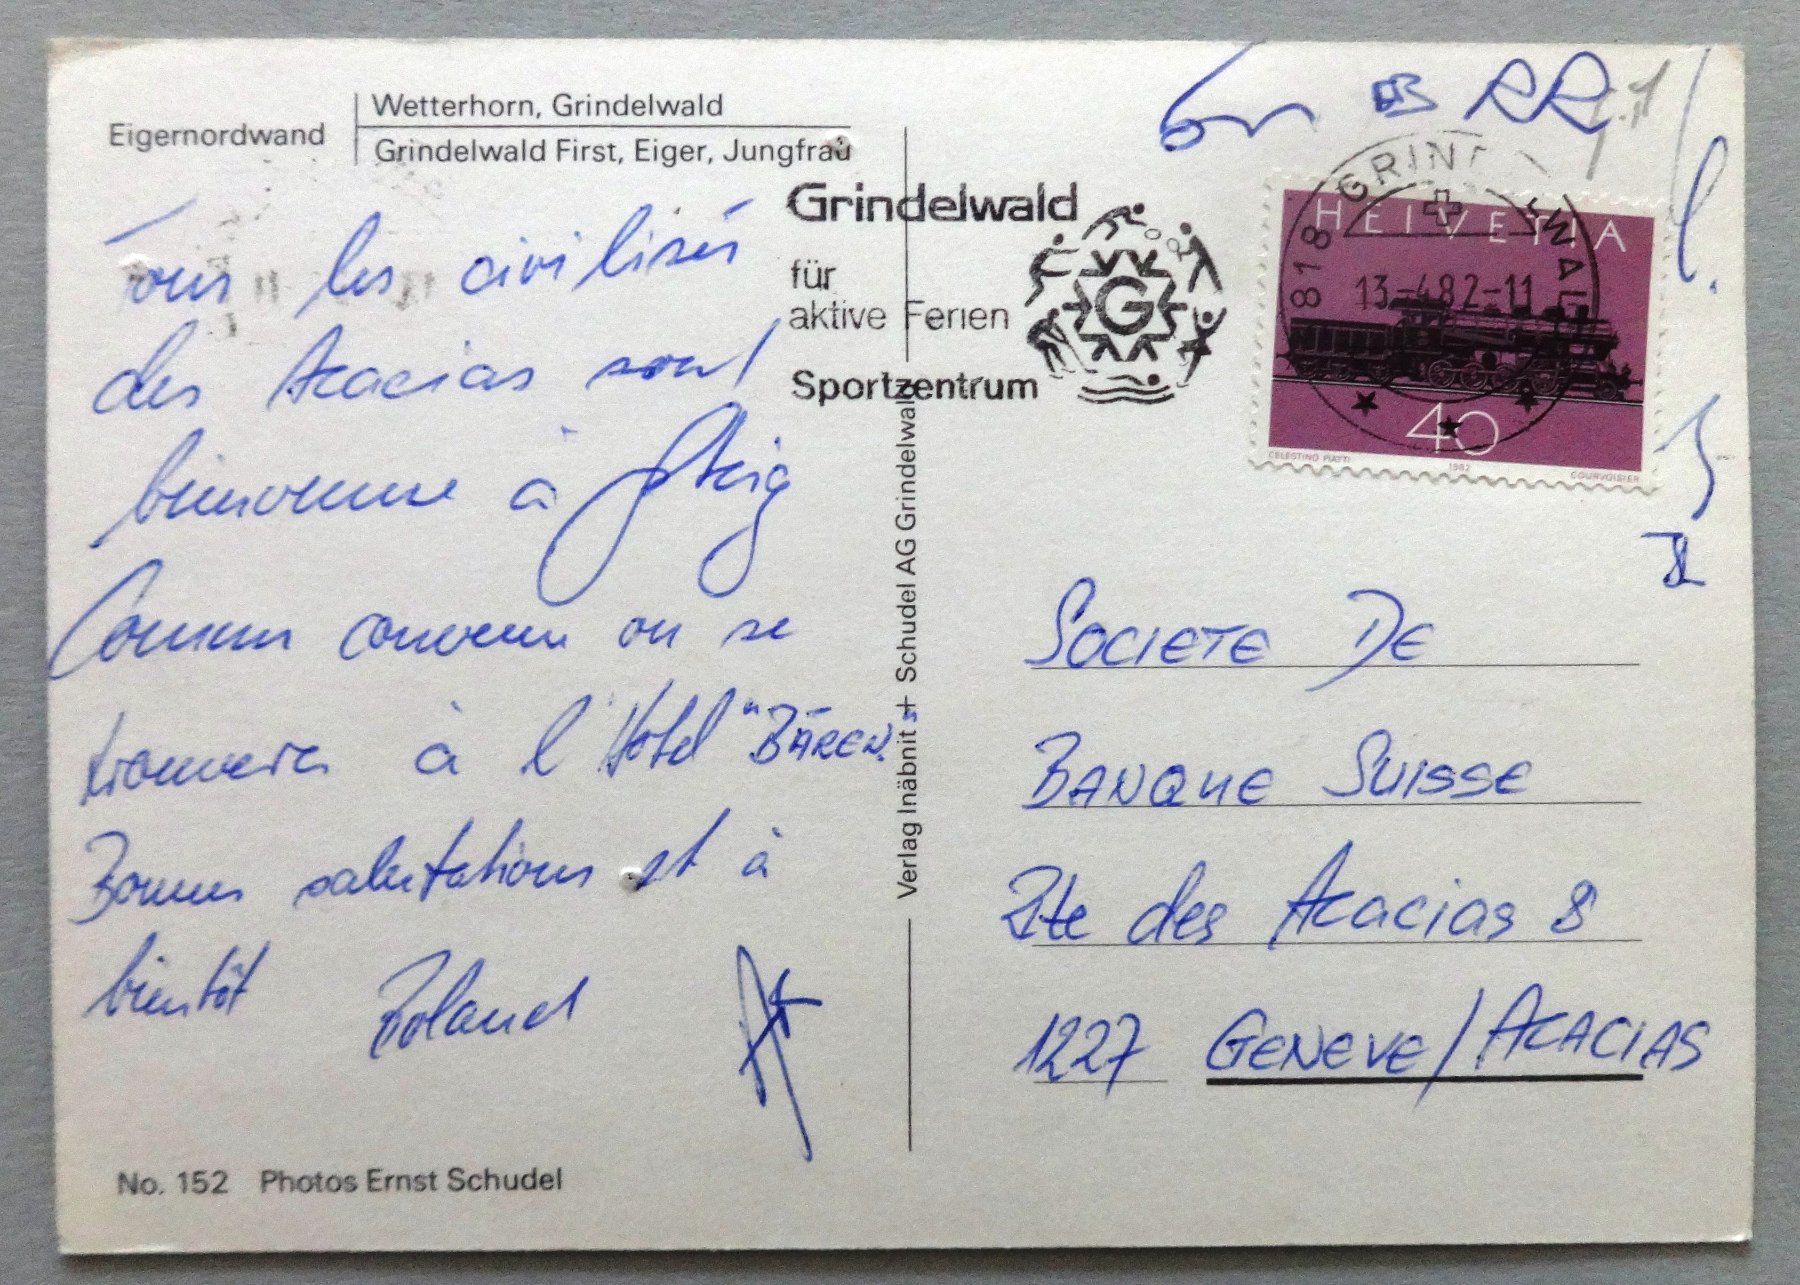 Eigernordwand
Wetterhorn, Grindelwald
Grindelwald First, Eiger, Jungfrau
Tous les civilisés
des Acacias sont
bienvenue à
Comme convenu on se
trouvera à l'Hotel "BÄREN"
Bonnes salutations et à
bientôt Roland
No. 152 Photos Ernst Schudel
Verlag Inäbnit + Schudel AG Grindelwald
Grindelwald
für
aktive Ferien
Sportzentrum
G
RR
818 GRINDELWALD
13-482-11
HELVETIA
40
CELESTINO PIATTI 1982 COURVOISIER
SOCIETE DE
BANQUE SUISSE
Rte des Acacias 8
1227 GENEVE/ACACIAS